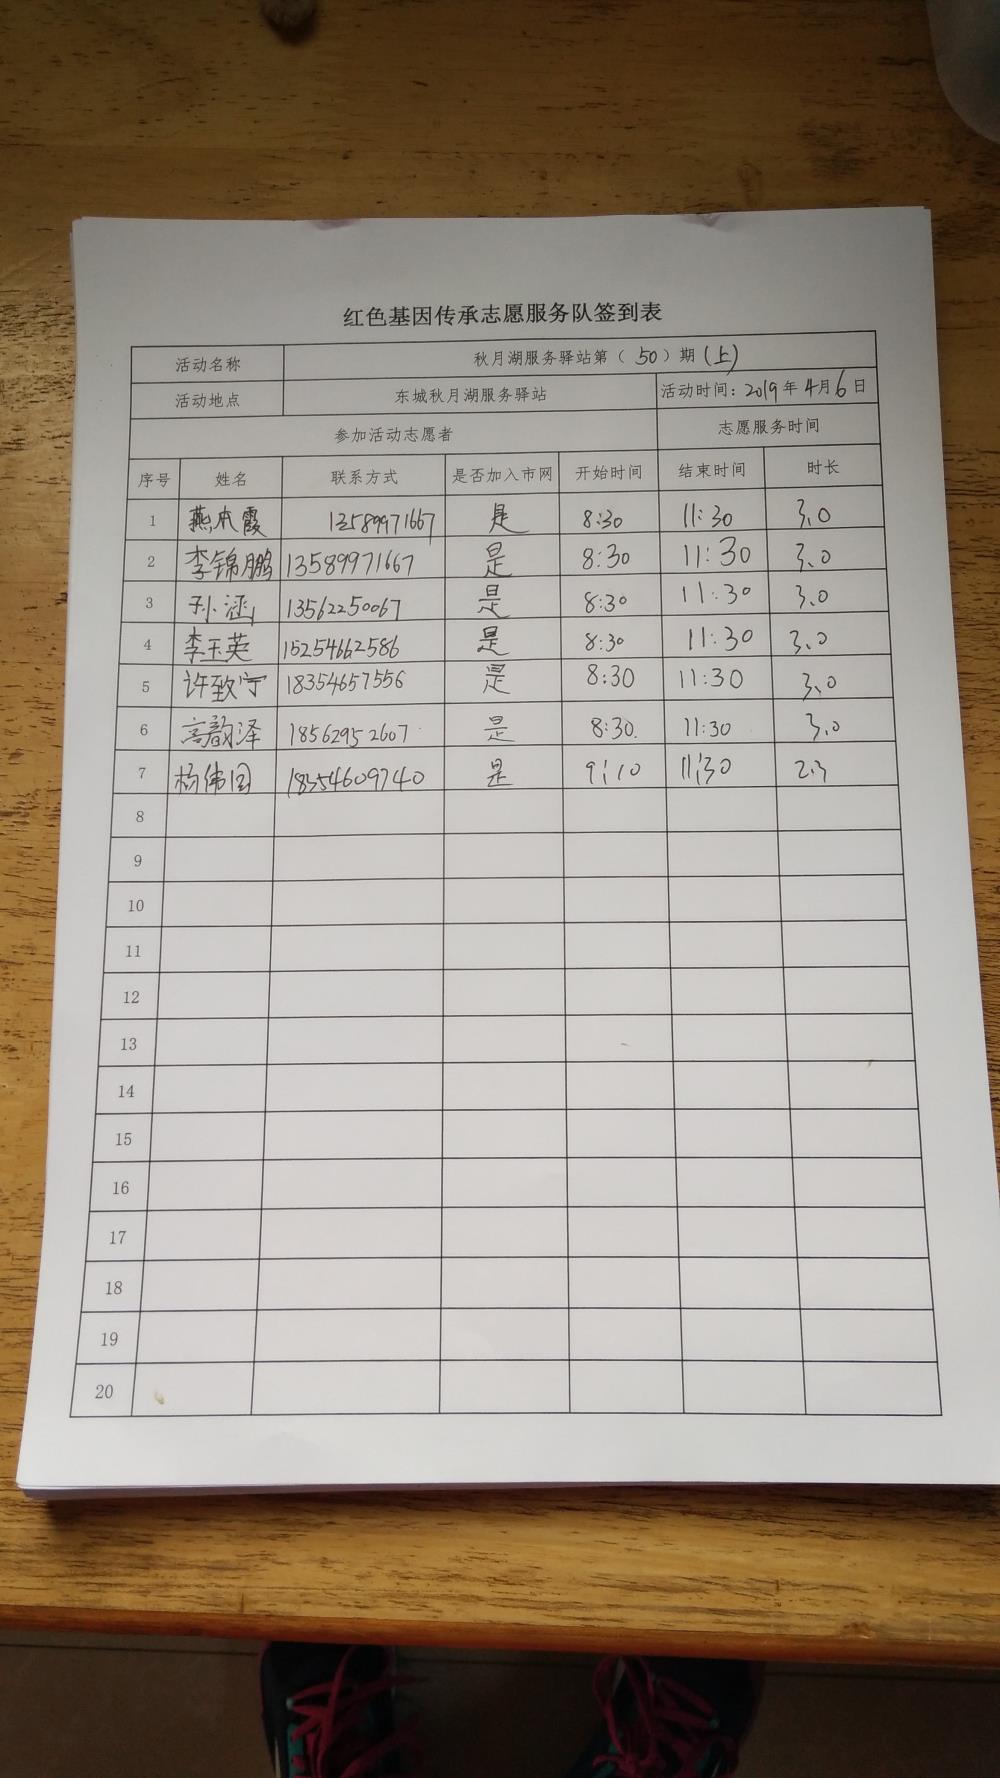 红色基因传承志愿服务队签到表
活动名称 秋月湖服务驿站第（50）期(上)
活动地点 东城秋月湖服务驿站 活动时间：2019年4月6日
参加活动志愿者 志愿服务时间
序号 姓名 联系方式 是否加入市网 开始时间 结束时间 时长
1 燕爪霞 13589971667 是 8:30 11:30 3.0
2 李锦鹏 13589971667 是 8:30 11:30 3.0
3 孙涵 13562250067 是 8:30 11:30 3.0
4 李玉英 15254662586 是 8:30 11:30 3.0
5 许致宁 18354657556 是 8:30 11:30 3.0
6 高韵泽 18562952607 是 8:30 11:30 3.0
7 杨伟国 18354609740 是 9:10 11:30 2.3
8
9
10
11
12
13
14
15
16
17
18
19
20